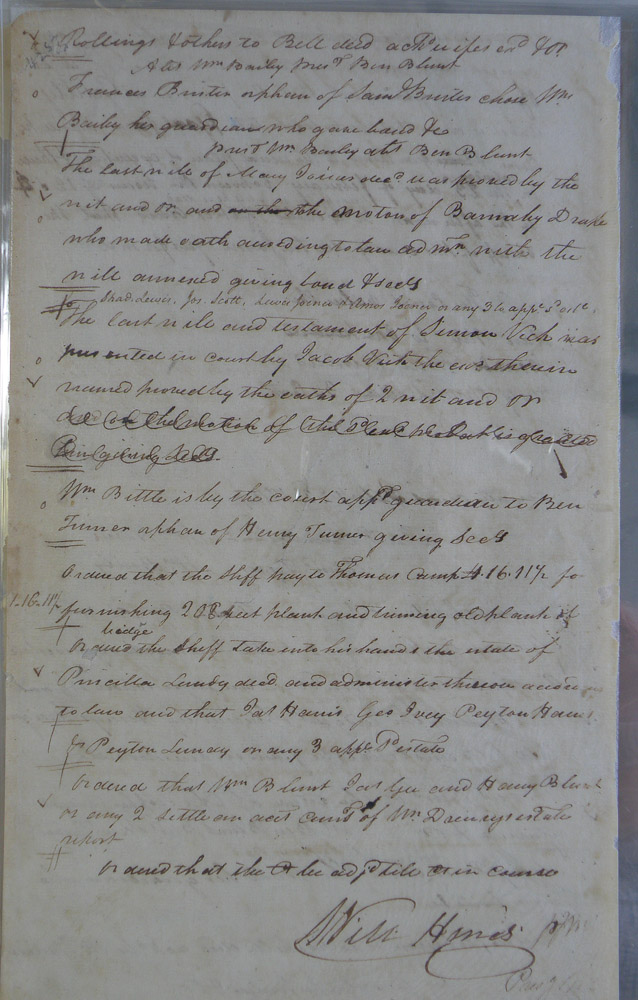 Rollings & others to Bell deed ack'd wifes ex'd & OR
Abs Wm Bailey pres't Ben Blunt
Frances Brister orphan of Sam'l Brister chose Wm
Bailey her guardian who gave bond &c
pres't Wm Bailey abs Ben Blunt
The last will of Mary Joiner dec'd was proved by the
wit and OR and on the motion of Barnaby Drake
who made oath according to law adm'n with the
will annexed giving bond & sec'y
Shad. Lewis, Jos. Scott, Lewis Joiner & Amos Joiner or any 3 to app'r
The last will and testament of Simon Vick was
presented in court by Jacob Vick the exr therein
named proved by the oaths of 2 wit and OR
on the motion of the probat is granted
him giving sec'y
Wm Bittle is by the court app'd guardian to Ben
Turner orphan of Henry Turner giving Sec'y
Ordered that the Shff pay to Thomas Camp 4.16.11½ fo
1.16.11½ furnishing 208 feet plank and triming old plank of
bridge
Ordered the Shff take into his hands the estate of
Priscilla Lundy dec'd and administer thereon accord
to law and that Jas Harris Geo Ivey Peyton Harris
& Peyton Lundy or any 3 app'r estate
Ordered that Wm Blunt Jas Gee and Henry Blunt
or any 2 settle an acct curr't of Wm Drewrys estate
report
Ordered that the Ct be adj'd till Ct in course
Will Hines